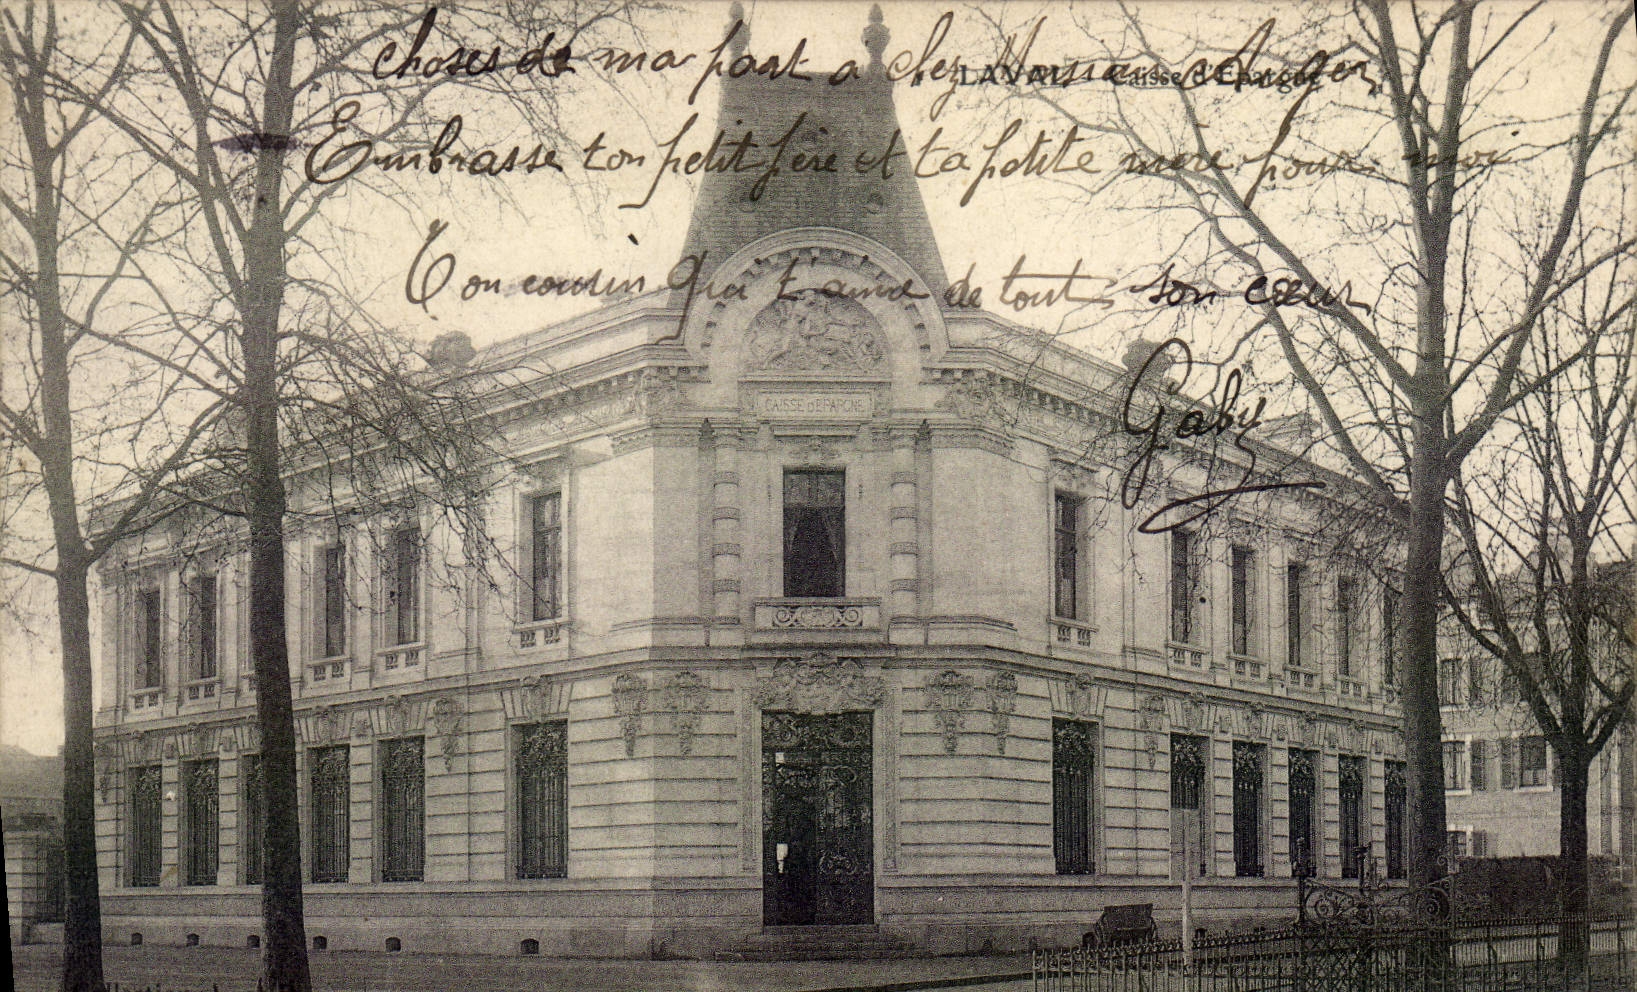 choses de ma part a chez
LAVAL - Caisse d'Epargne
Embrasse ton petit père et ta petite mère pour moi
Ton cousin qui t'aime de tout son cœur
Gaby
CAISSE D'EPARGNE